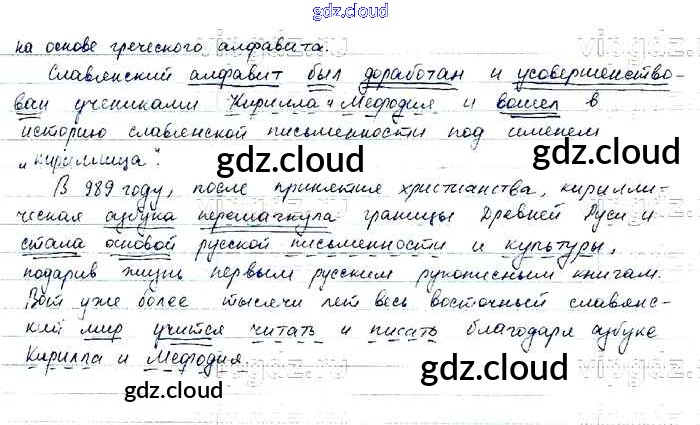 gdz.cloud
на основе греческого алфавита.
Славянский алфавит был доработан и усовершенство-
ван учениками Кирилла и Мефодия и вошел в
историю славянской письменности под именем
„кириллица“.
gdz.cloud gdz.cloud
В 989 году, после принятия христианства, кирилли-
ческая азбука перешагнула границы Древней Руси и
стала основой русской письменности и культуры,
gdz.cloud gdz.cloud
подарив жизнь первым русским рукописным книгам.
Вот уже более тысячи лет весь восточный славянс-
кий мир учится читать и писать благодаря азбуке
Кирилла и Мефодия.
gdz.cloud gdz.cloud